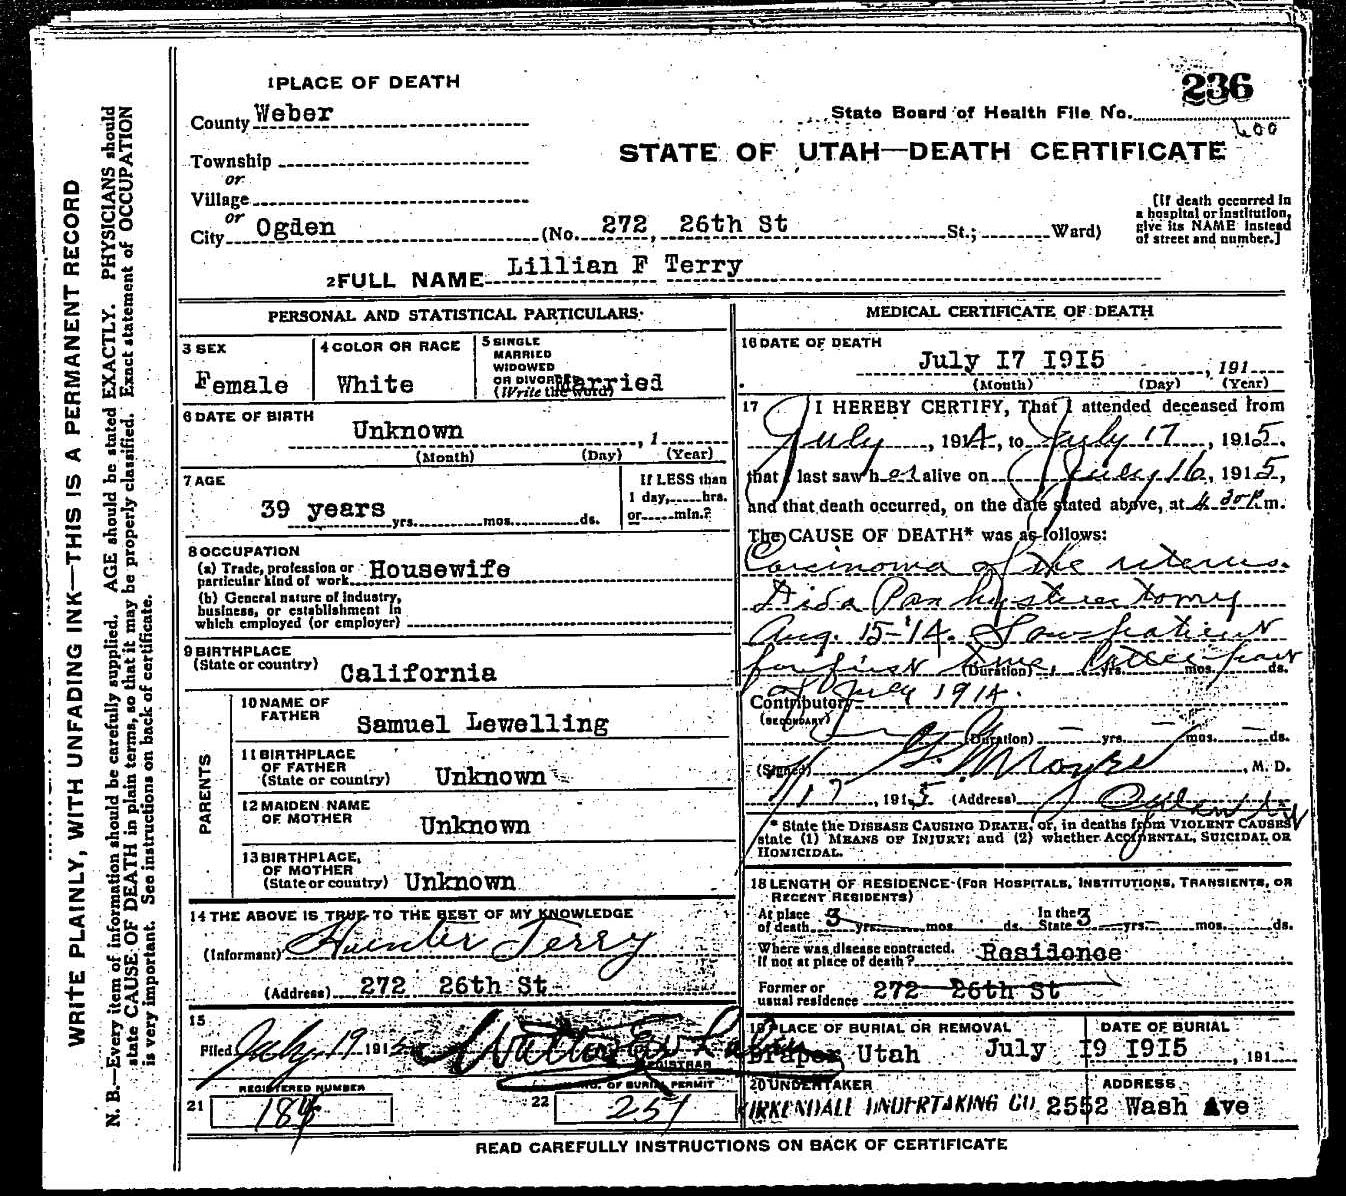 WRITE PLAINLY, WITH UNFADING INK—THIS IS A PERMANENT RECORD
N. B.—Every item of information should be carefully supplied. AGE should be stated EXACTLY. PHYSICIANS should
state CAUSE OF DEATH in plain terms, so that it may be properly classified. Exact statement of OCCUPATION
is very important. See instructions on back of certificate.
236
1 PLACE OF DEATH
County Weber
State Board of Health File No.
600
Township
or
STATE OF UTAH—DEATH CERTIFICATE
Village
or
City Ogden (No. 272, 26th St St.; Ward)
[If death occurred in
a hospital or institution,
give its NAME instead
of street and number.]
2 FULL NAME Lillian F Terry
PERSONAL AND STATISTICAL PARTICULARS
3 SEX
Female
4 COLOR OR RACE
White
5 SINGLE
MARRIED
WIDOWED
OR DIVORCED
(Write the word)
Married
6 DATE OF BIRTH
Unknown , 1
(Month) (Day) (Year)
7 AGE
39 years yrs. mos. ds.
If LESS than
1 day, hrs.
or min.?
8 OCCUPATION
(a) Trade, profession or
particular kind of work Housewife
(b) General nature of industry,
business, or establishment in
which employed (or employer)
9 BIRTHPLACE
(State or country) California
PARENTS
10 NAME OF
FATHER Samuel Lewelling
11 BIRTHPLACE
OF FATHER
(State or country) Unknown
12 MAIDEN NAME
OF MOTHER Unknown
13 BIRTHPLACE,
OF MOTHER
(State or country) Unknown
14 THE ABOVE IS TRUE TO THE BEST OF MY KNOWLEDGE
(Informant) Hunter Terry
(Address) 272 26th St
15
Filed July 19 1915
REGISTRAR
REGISTERED NUMBER
21 184
NO. OF BURIAL PERMIT
22 257
MEDICAL CERTIFICATE OF DEATH
16 DATE OF DEATH
July I7 I9I5 , 191
(Month) (Day) (Year)
17 I HEREBY CERTIFY, That I attended deceased from
July , 1914, to July 17 , 1915,
that I last saw her alive on July 16, 1915,
and that death occurred, on the date stated above, at 4 30 P m.
The CAUSE OF DEATH* was as follows:
Carcinoma of the uterus.
Did a Pan hysterectomy
Aug. 15-'14. Saw patient
for first time, latter part
(Duration) yrs. mos. ds.
of July 1914.
Contributory
(SECONDARY)
(Duration) yrs. mos. ds.
(Signed) Moyes , M. D.
7/17 , 1915 (Address) Ogden Utah
* State the DISEASE CAUSING DEATH, or, in deaths from VIOLENT CAUSES
state (1) MEANS OF INJURY; and (2) whether ACCIDENTAL, SUICIDAL OR
HOMICIDAL.
18 LENGTH OF RESIDENCE (FOR HOSPITALS, INSTITUTIONS, TRANSIENTS, OR
RECENT RESIDENTS)
At place
of death 3 yrs. mos. ds. In the
State 3 yrs. mos. ds.
Where was disease contracted,
If not at place of death? Residence
Former or
usual residence 272 26th St
19 PLACE OF BURIAL OR REMOVAL
Draper Utah
DATE OF BURIAL
July I9 I9I5 , 191
20 UNDERTAKER
KIRKENDALL UNDERTAKING CO
ADDRESS
2552 Wash Ave
READ CAREFULLY INSTRUCTIONS ON BACK OF CERTIFICATE